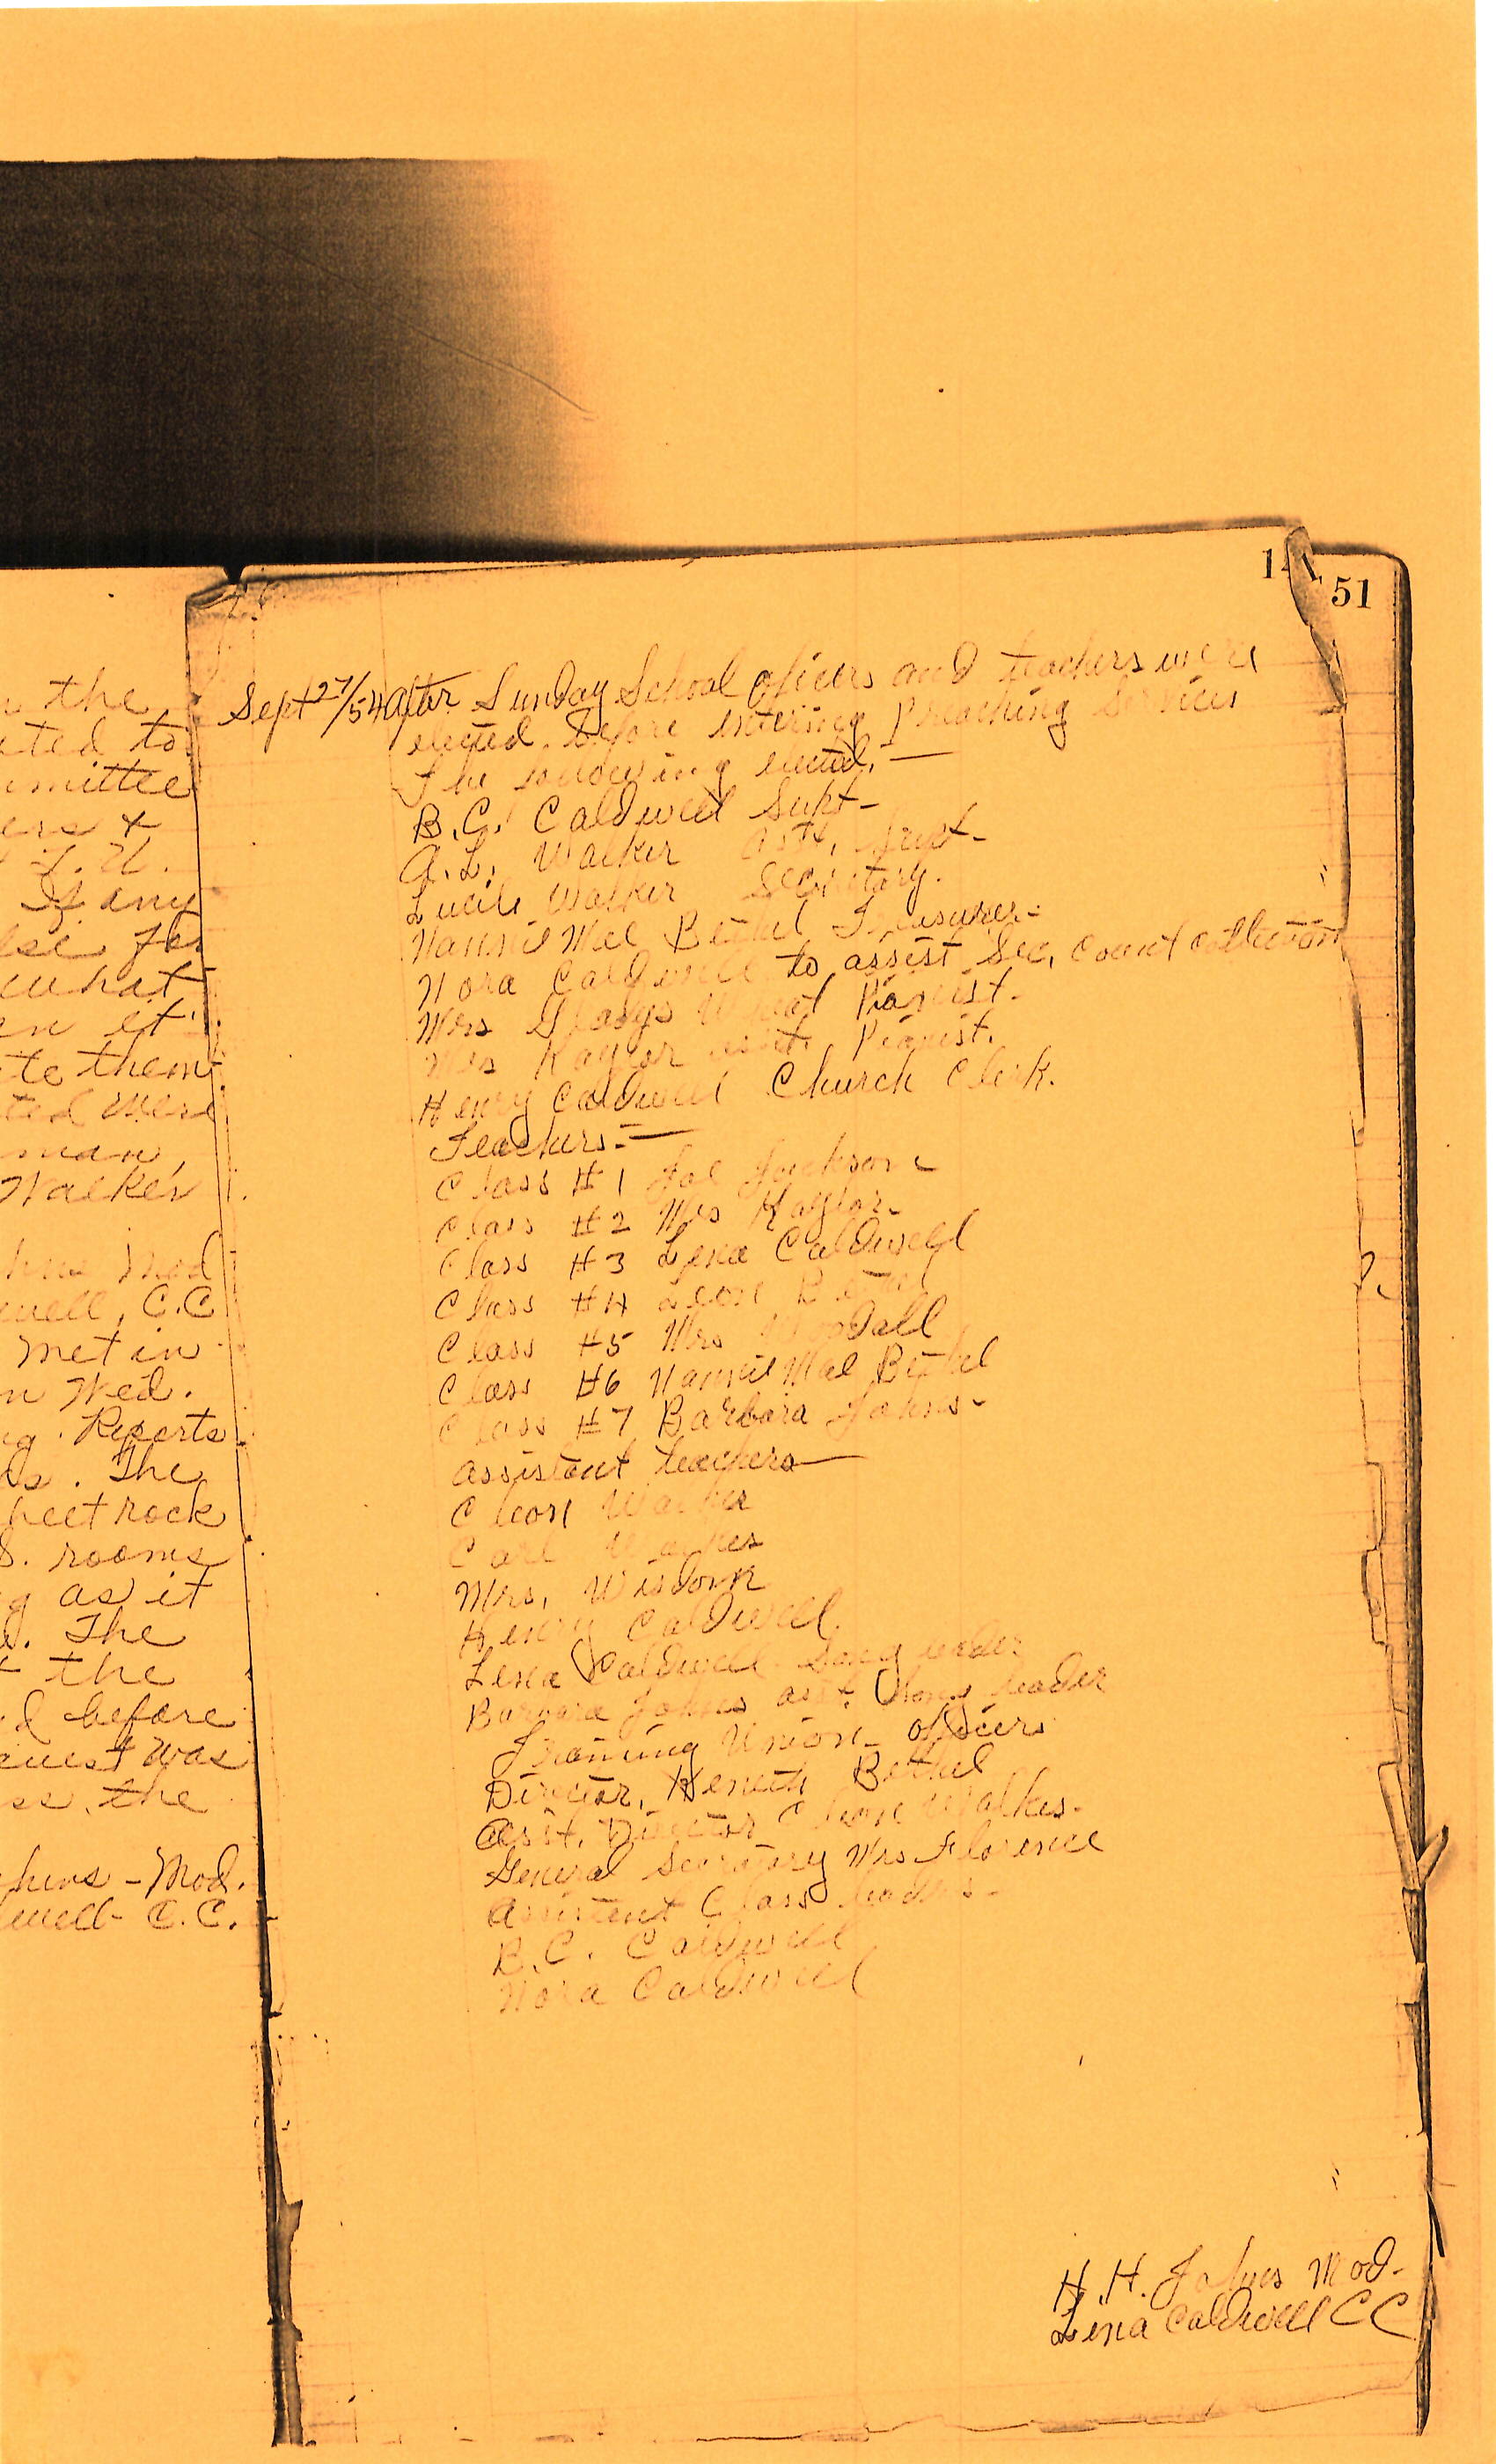 n the
cted to
mmittee
ers +
If any
lse for
what
en it
te them
ted were
man,
Walker
Mod
well, C.C
met in
n Wed.
g. Reports
ds. The
heet rock
S. rooms
g as it
d. The
t the
d before
quest was
ss. the
hns - Mod.
well - C.C.
14
151
Sept 27/54 After Sunday School oficers and teachers were
elected. Before entering Preaching Services
The following elected, —
B.C. Caldwell Supt -
A.L. Walker asst, Supt -
Lucile Walker Secretary.
Nannie Mae Bethel Treasurer -
Nora Caldwell to assist Sec, Count collection
Mrs Gladys Pianist -
Mrs Kaylor asst. Pianist.
Henry Caldwell Church Clerk.
Teachers: —
Class #1 Joe Jackson -
Class #2 Mrs Kaylor -
Class #3 Lena Caldwell
Class #4 Leon Bethel
Class #5 Mrs
Class #6 Nannie Mae Bethel
Class #7 Barbara Johns -
assistant teachers —
Cleon Walker
Carl Walker
Mrs, Wisdom
Henry Caldwell
Lena Caldwell Song leader
Barbara Johns asst. Song leader
Training Union - oficers
Director, Keneth Bethel
Asst, Director Cleon Walker -
General Secretary Mrs Florence
Assistent Class leaders -
B.C. Caldwell
Nora Caldwell
H.H. Johns Mod -
Lena Caldwell CC